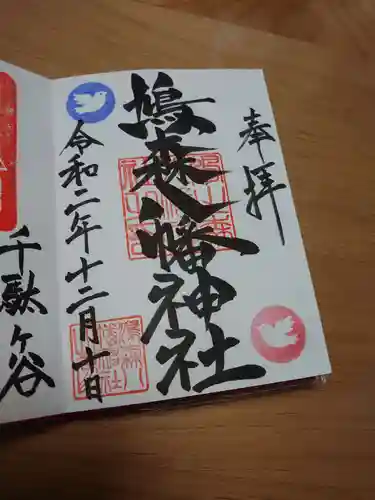 奉拝
鳩森八幡神社
令和二年十二月十日
千駄ヶ谷